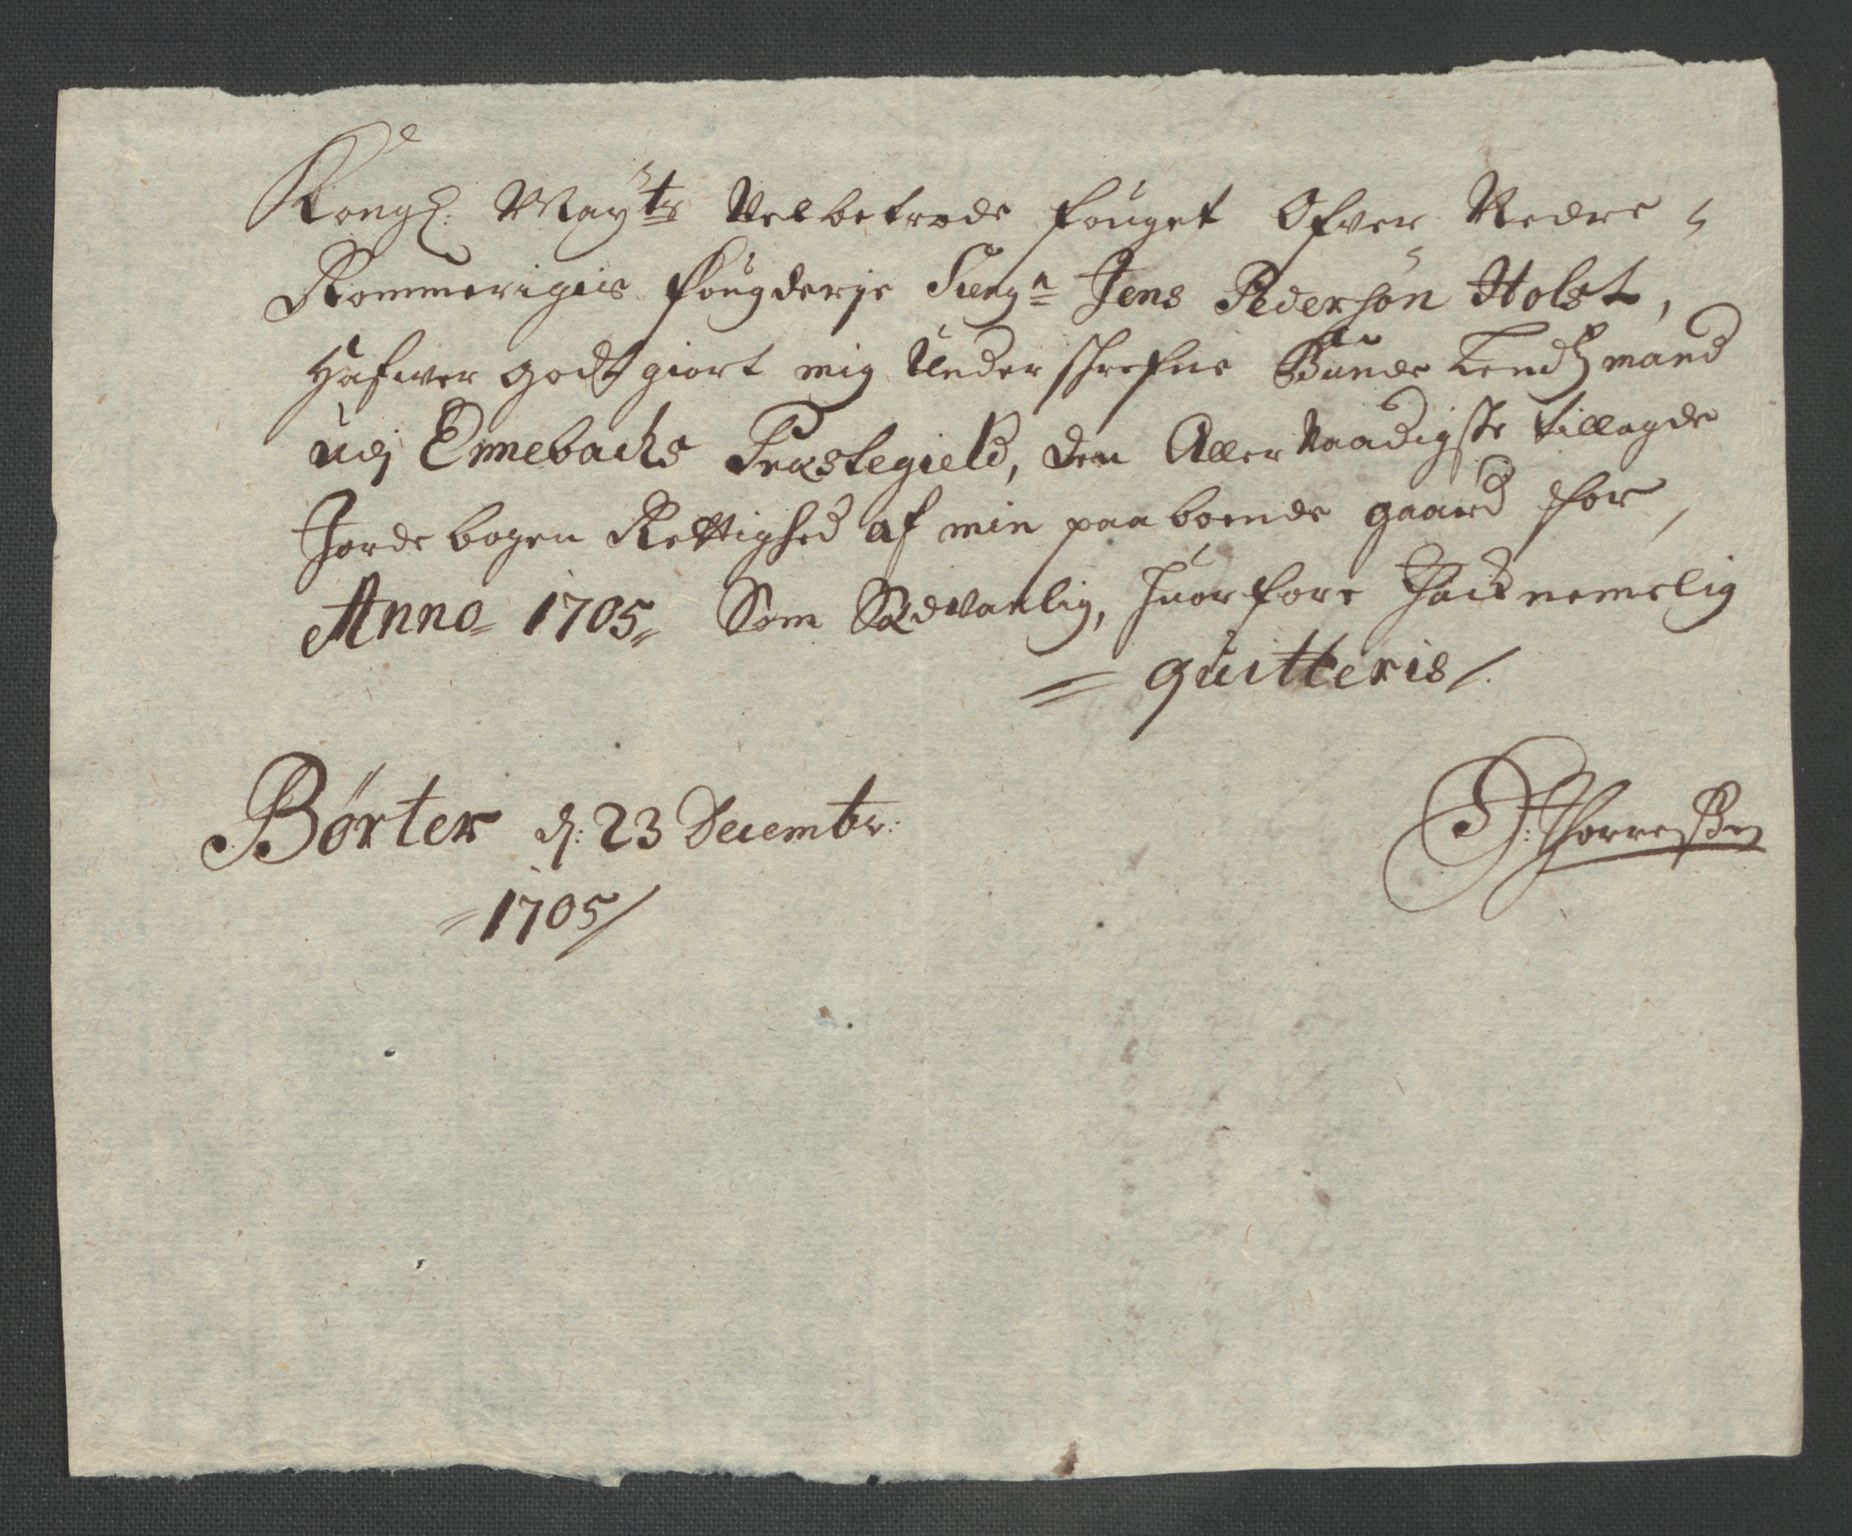 Kongl: May:ts Velbetrode fouget Ofver Nedre-
Rommerigiis fougderje Sieng:n Jens Pedersøn Holst,
Hafwer godtgiort mig Underschrefne Bunde Lendsmand
udj Ennebachs Præstegield, den Allernaadigste tillagde
Jordebogen Rettighed af min paaboende gaard for,
Anno 1705, Som Sædvanlig, huorfore Tacknemelig
= quitteris/.
Børter d: 23 Decembr:
= 1705/
Thorressen